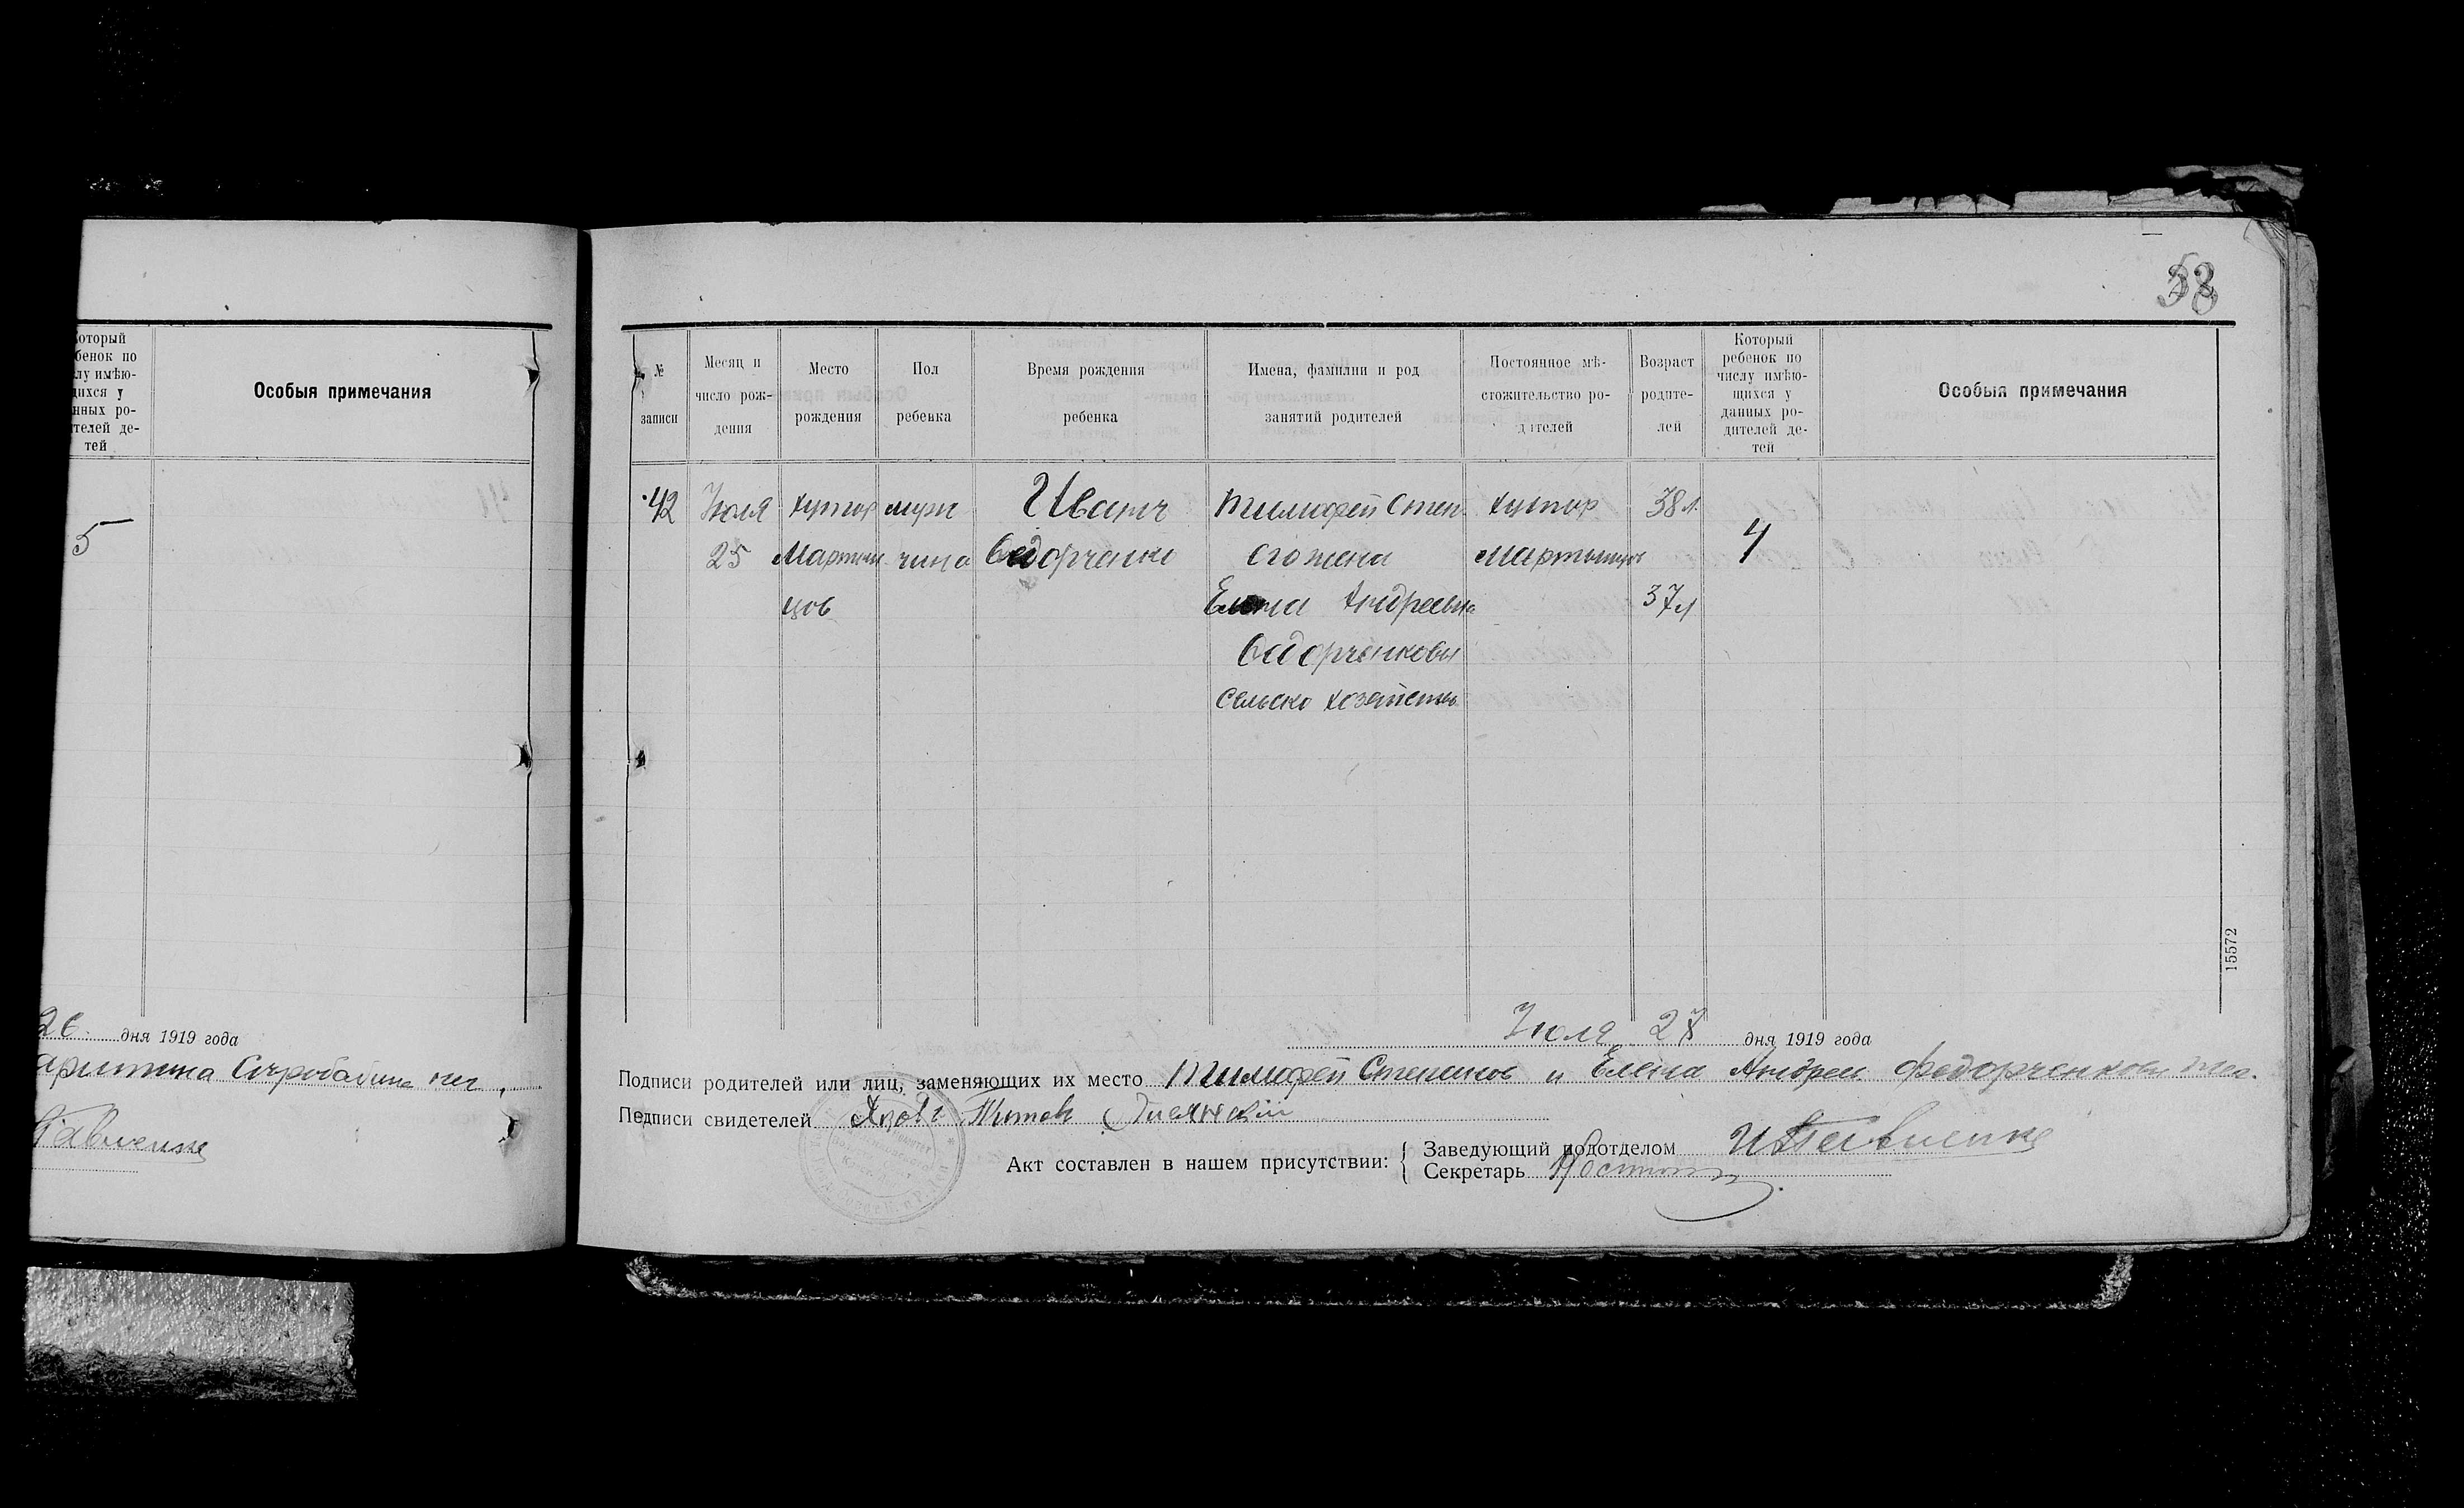 который
бенок по
лу имѣю-
щихся у
нных ро-
ителей де-
тей
Особыя примечания
5
26 дня 1919 года
58
№
записи
Месяц и
число рож-
дения
Место
рождения
Пол
ребенка
Время рождения
ребенка
Имена, фамилии и род
занятий родителей
Постоянное мѣ-
стожительство ро-
дителей
Возраст
родите-
лей
Который
ребенок по
числу имѣю-
щихся у
данных ро-
дителей де-
тей
Особыя примечания
42
Июля
25
хутор
Мартын
цов
муж
чина
Иванъ
Ѳедорченко
Тимофей Степ.
его жена
Елена Андреевна
Ѳедорченковы
Сельско хозяйство
хутор
Мартынцов
38 л.
37 л
4
Июля 28 дня 1919 года
Подписи родителей или лиц, заменяющих их место Тимофей Степанов и Елена Андреев. Федорченковы
Подписи свидетелей Яков Титов
Акт составлен в нашем присутствии:
Заведующий подотделом
Секретарь
15572